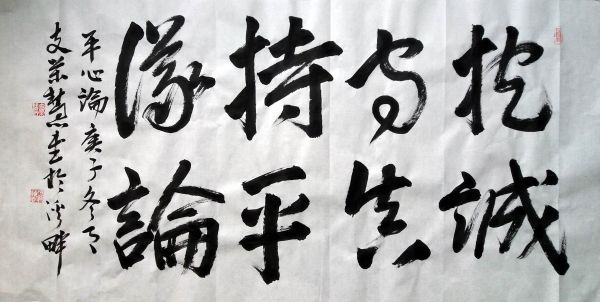 抱誠
守真
持平
論
平心論庚子冬月
支慧書於溪畔